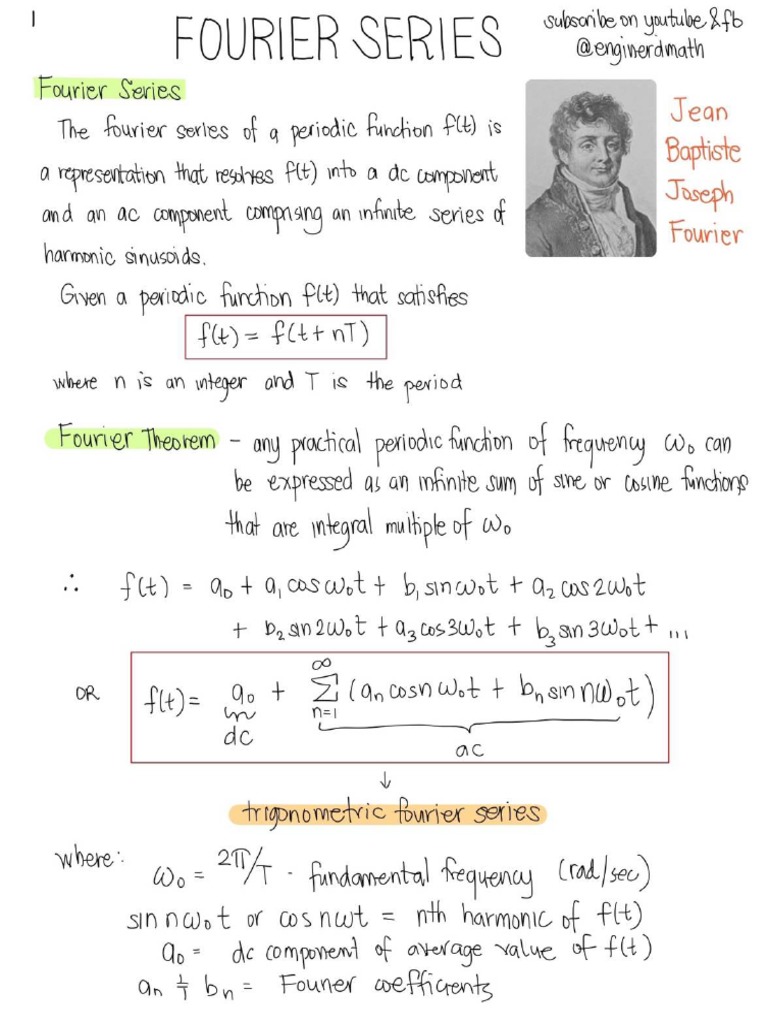 1
FOURIER SERIES
subscribe on youtube & fb
@enginerdmath
Fourier Series
The fourier series of a periodic function f(t) is
a representation that resolves f(t) into a dc component
and an ac component comprising an infinite series of
harmonic sinusoids.
Jean
Baptiste
Joseph
Fourier
Given a periodic function f(t) that satisfies
f(t) = f(t + nT)
where n is an integer and T is the period
Fourier Theorem - any practical periodic function of frequency ω₀ can
be expressed as an infinite sum of sine or cosine functions
that are integral multiple of ω₀
∴ f(t) = a₀ + a₁ cos ω₀t + b₁ sin ω₀t + a₂ cos 2ω₀t
+ b₂ sin 2ω₀t + a₃ cos 3ω₀t + b₃ sin 3ω₀t + ...
OR f(t) = a₀ + ∞ Σ n=1 (aₙ cos n ω₀t + bₙ sin nω₀t)
dc
ac
↓
trigonometric fourier series
where: ω₀ = 2π/T - fundamental frequency (rad/sec)
sin n ω₀ t or cos nωt = nth harmonic of f(t)
a₀ = dc component of average value of f(t)
aₙ & bₙ = Fourier coefficients